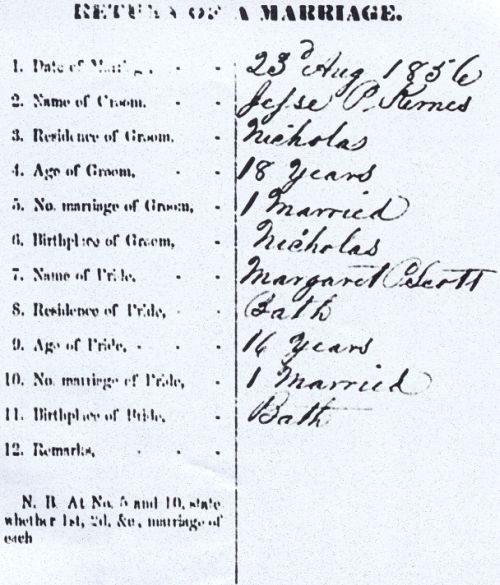 RETURN OF A MARRIAGE.
1. Date of Marriage, - - 23d Aug 1856
2. Name of Groom, - - Jesse P. Kernes
3. Residence of Groom, - Nicholas
4. Age of Groom, - - 18 Years
5. No. marriage of Groom, - 1 Married
6. Birthplace of Groom, - Nicholas
7. Name of Bride, - - Margaret C Scott
8. Residence of Bride, - - Bath
9. Age of Bride, - - 16 Years
10. No. marriage of Bride, - 1 Married
11. Birthplace of Bride, - Bath
12. Remarks, - - -
N. B. At No. 5 and 10, state
whether 1st, 2d, &c., marriage of
each